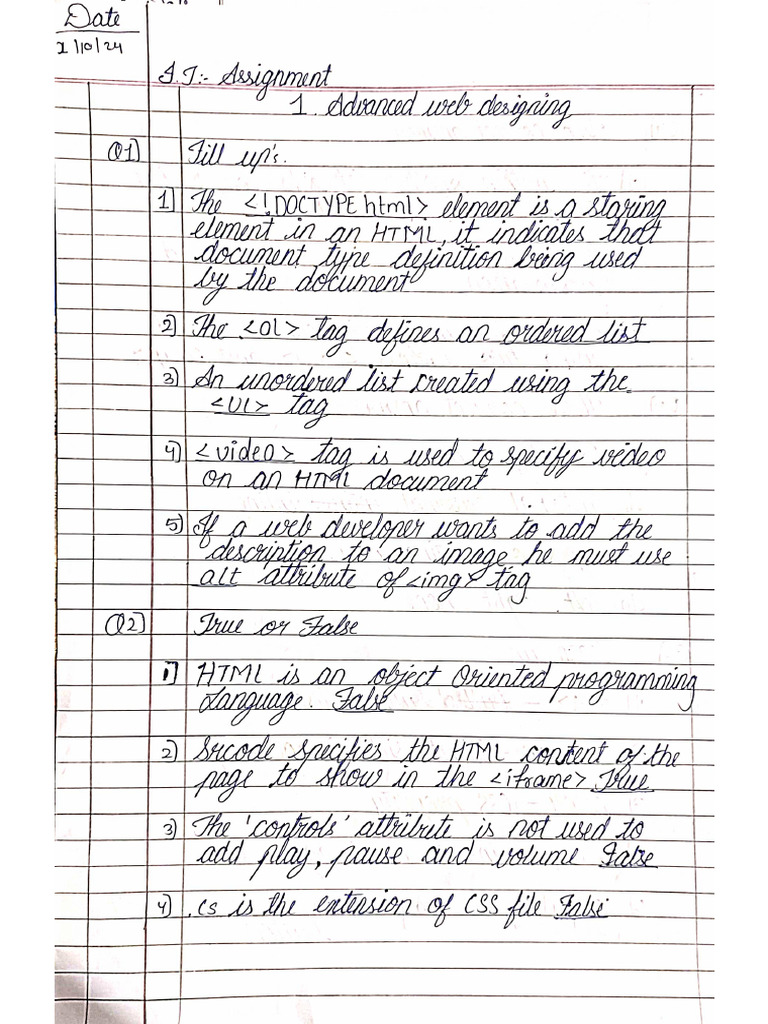 Date
1/10/24
I.T:- Assignment
1. Advanced web designing
Q1) Fill up's.
1) The <!DOCTYPE html> element is a staring
element in an HTML, it indicates that
document type definition being used
by the document
2) The <Ol> tag defines an ordered list
3) An unordered list created using the
<Ul> tag
4) <video> tag is used to specify video
on an HTML document
5) If a web developer wants to add the
description to an image he must use
alt attribute of <img> tag
Q2) True or False
1) HTML is an object Oriented programming
Language. False
2) Srcode specifies the HTML content of the
page to show in the <iframe> True
3) The 'controls' attribute is not used to
add play, pause and volume False
4) .cs is the extension of CSS file False